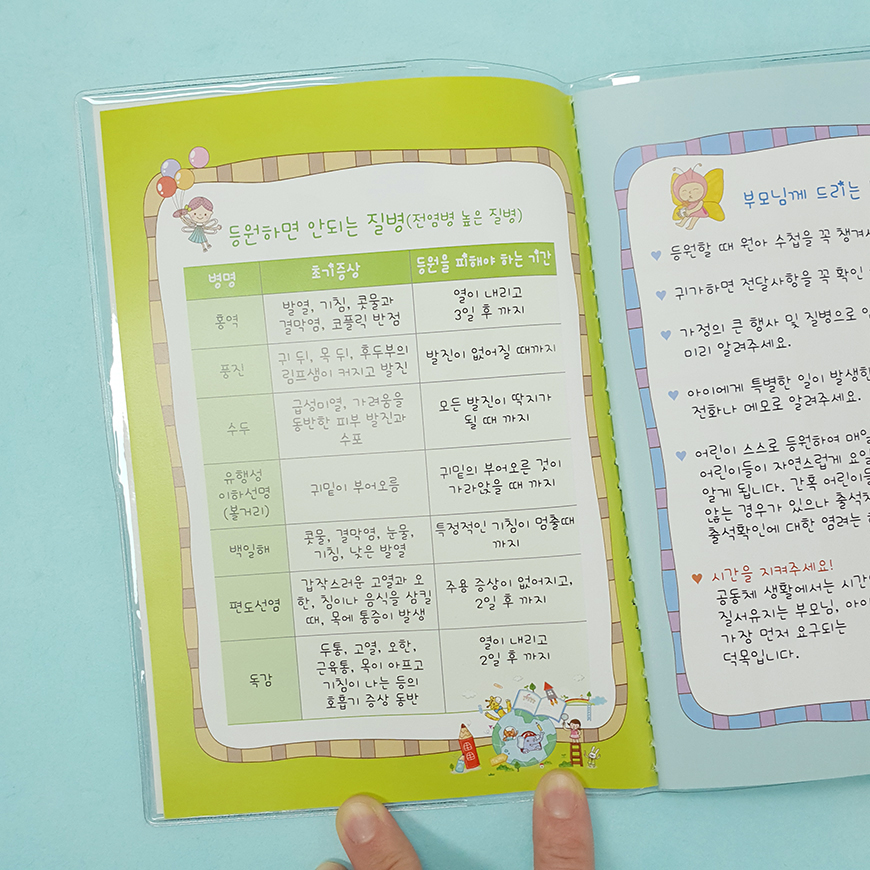 등원하면 안되는 질병(전염병 높은 질병)
병명 초기증상 등원을 피해야 하는 기간
홍역
발열, 기침, 콧물과
결막염, 코플릭 반점
열이 내리고
3일 후 까지
풍진
귀 뒤, 목 뒤, 후두부의
림프샘이 커지고 발진
발진이 없어질 때까지
수두
급성미열, 가려움을
동반한 피부 발진과
수포
모든 발진이 딱지가
될 때 까지
유행성
이하선명
(볼거리)
귀밑이 부어오름
귀밑의 부어오른 것이
가라앉을 때 까지
백일해
콧물, 결막염, 눈물,
기침, 낮은 발열
특정적인 기침이 멈출때
까지
편도선염
갑작스러운 고열과 오
한, 침이나 음식을 삼킬
때, 목에 통증이 발생
주용 증상이 없어지고,
2일 후 까지
독감
두통, 고열, 오한,
근육통, 목이 아프고
기침이 나는 등의
호흡기 증상 동반
열이 내리고
2일 후 까지
부모님께 드리는
등원할 때 원아 수첩을 꼭 챙겨
귀가하면 전달사항을 꼭 확인
가정의 큰 행사 및 질병으로
미리 알려주세요.
아이에게 특별한 일이 발생한
전화나 메모로 알려주세요.
어린이 스스로 등원하여 매일
어린이들이 자연스럽게 요일
알게 됩니다. 간혹 어린이들
않는 경우가 있으나 출석
출석확인에 대한 염려는
시간을 지켜주세요!
공동체 생활에서는 시간
질서유지는 부모님, 아이
가장 먼저 요구되는
덕목입니다.